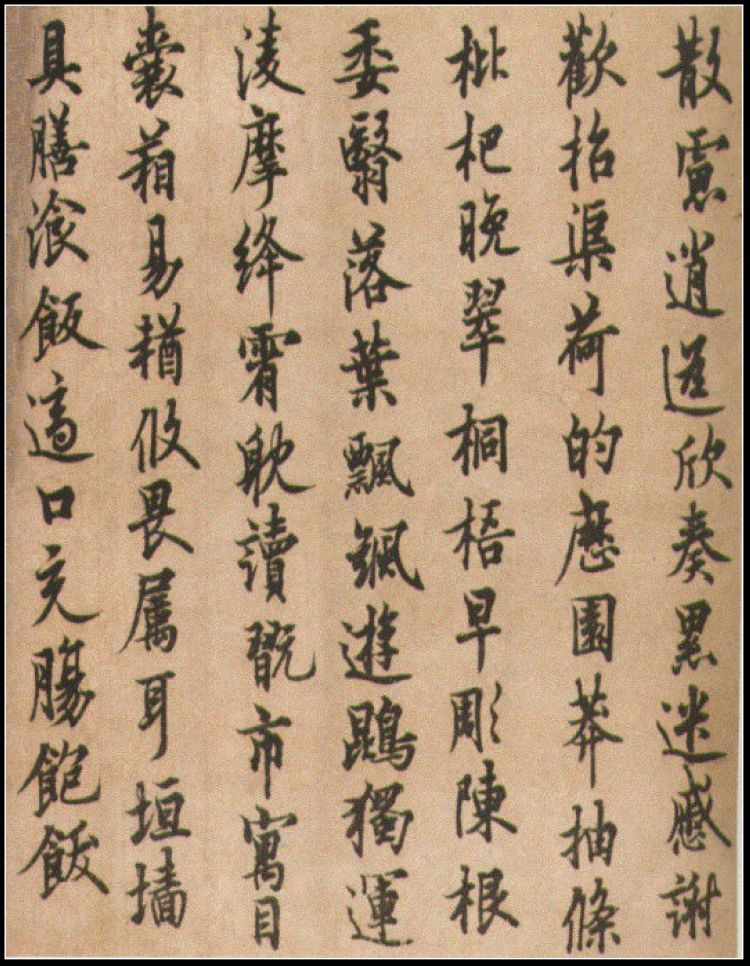 散慮逍遥欣奏累迷慼謝
歡招渠荷的歷園莽抽條
枇杷晚翠桐梧早彫陳根
委翳落葉飄颻遊鵾獨運
淩摩絳霄耽讀翫市寓目
囊葙易輶攸畏属耳垣墻
具膳湌飯適口充腸飽飫